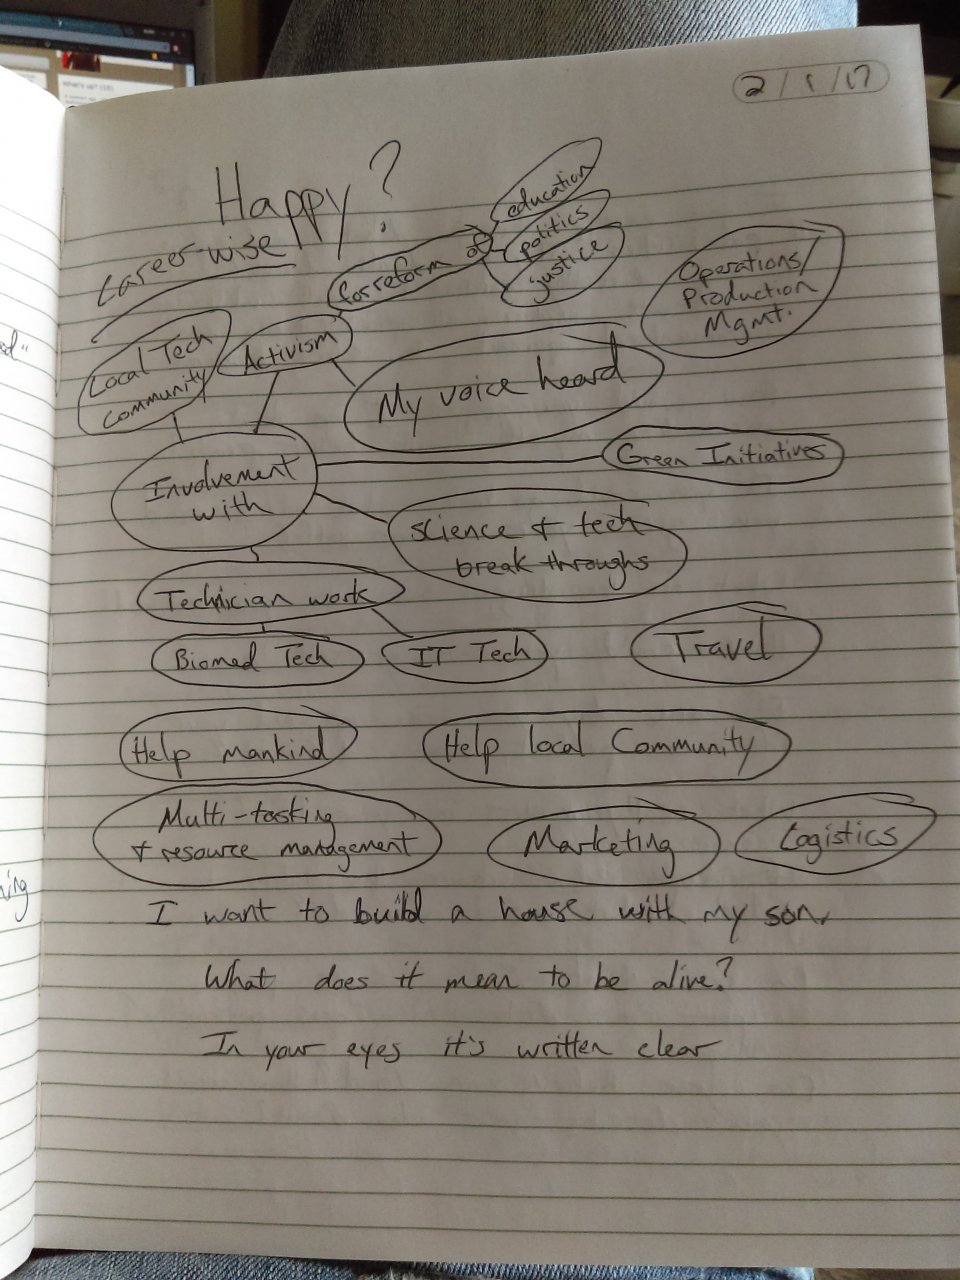 2/1/17
Happy?
Career-wise
education
politics
justice
for reform of
Operations/
Production
Mgmt.
Local Tech
Community
Activism
My voice heard
Involvement
with
Green Initiatives
Science & tech
break throughs
Technician work
Biomed Tech
IT Tech
Travel
Help mankind
Help local Community
Multi-tasking
& resource management
Marketing
Logistics
I want to build a house with my son.
What does it mean to be alive?
In your eyes it's written clear